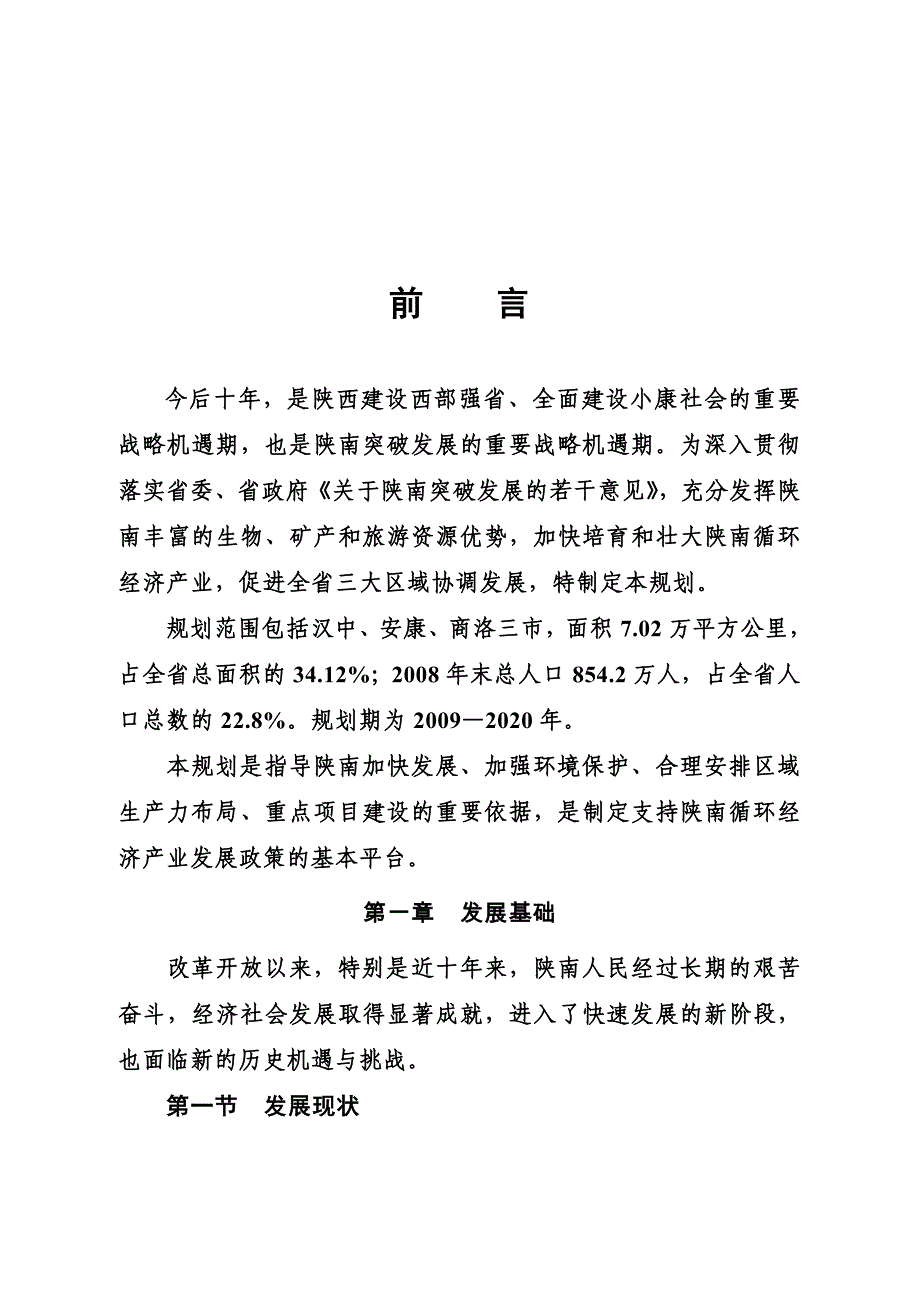 前　　言
今后十年，是陕西建设西部强省、全面建设小康社会的重要
战略机遇期，也是陕南突破发展的重要战略机遇期。为深入贯彻
落实省委、省政府《关于陕南突破发展的若干意见》，充分发挥陕
南丰富的生物、矿产和旅游资源优势，加快培育和壮大陕南循环
经济产业，促进全省三大区域协调发展，特制定本规划。
规划范围包括汉中、安康、商洛三市，面积 7.02 万平方公里，
占全省总面积的 34.12%；2008 年末总人口 854.2 万人，占全省人
口总数的 22.8%。规划期为 2009—2020 年。
本规划是指导陕南加快发展、加强环境保护、合理安排区域
生产力布局、重点项目建设的重要依据，是制定支持陕南循环经
济产业发展政策的基本平台。
第一章　发展基础
改革开放以来，特别是近十年来，陕南人民经过长期的艰苦
奋斗，经济社会发展取得显著成就，进入了快速发展的新阶段，
也面临新的历史机遇与挑战。
第一节　发展现状